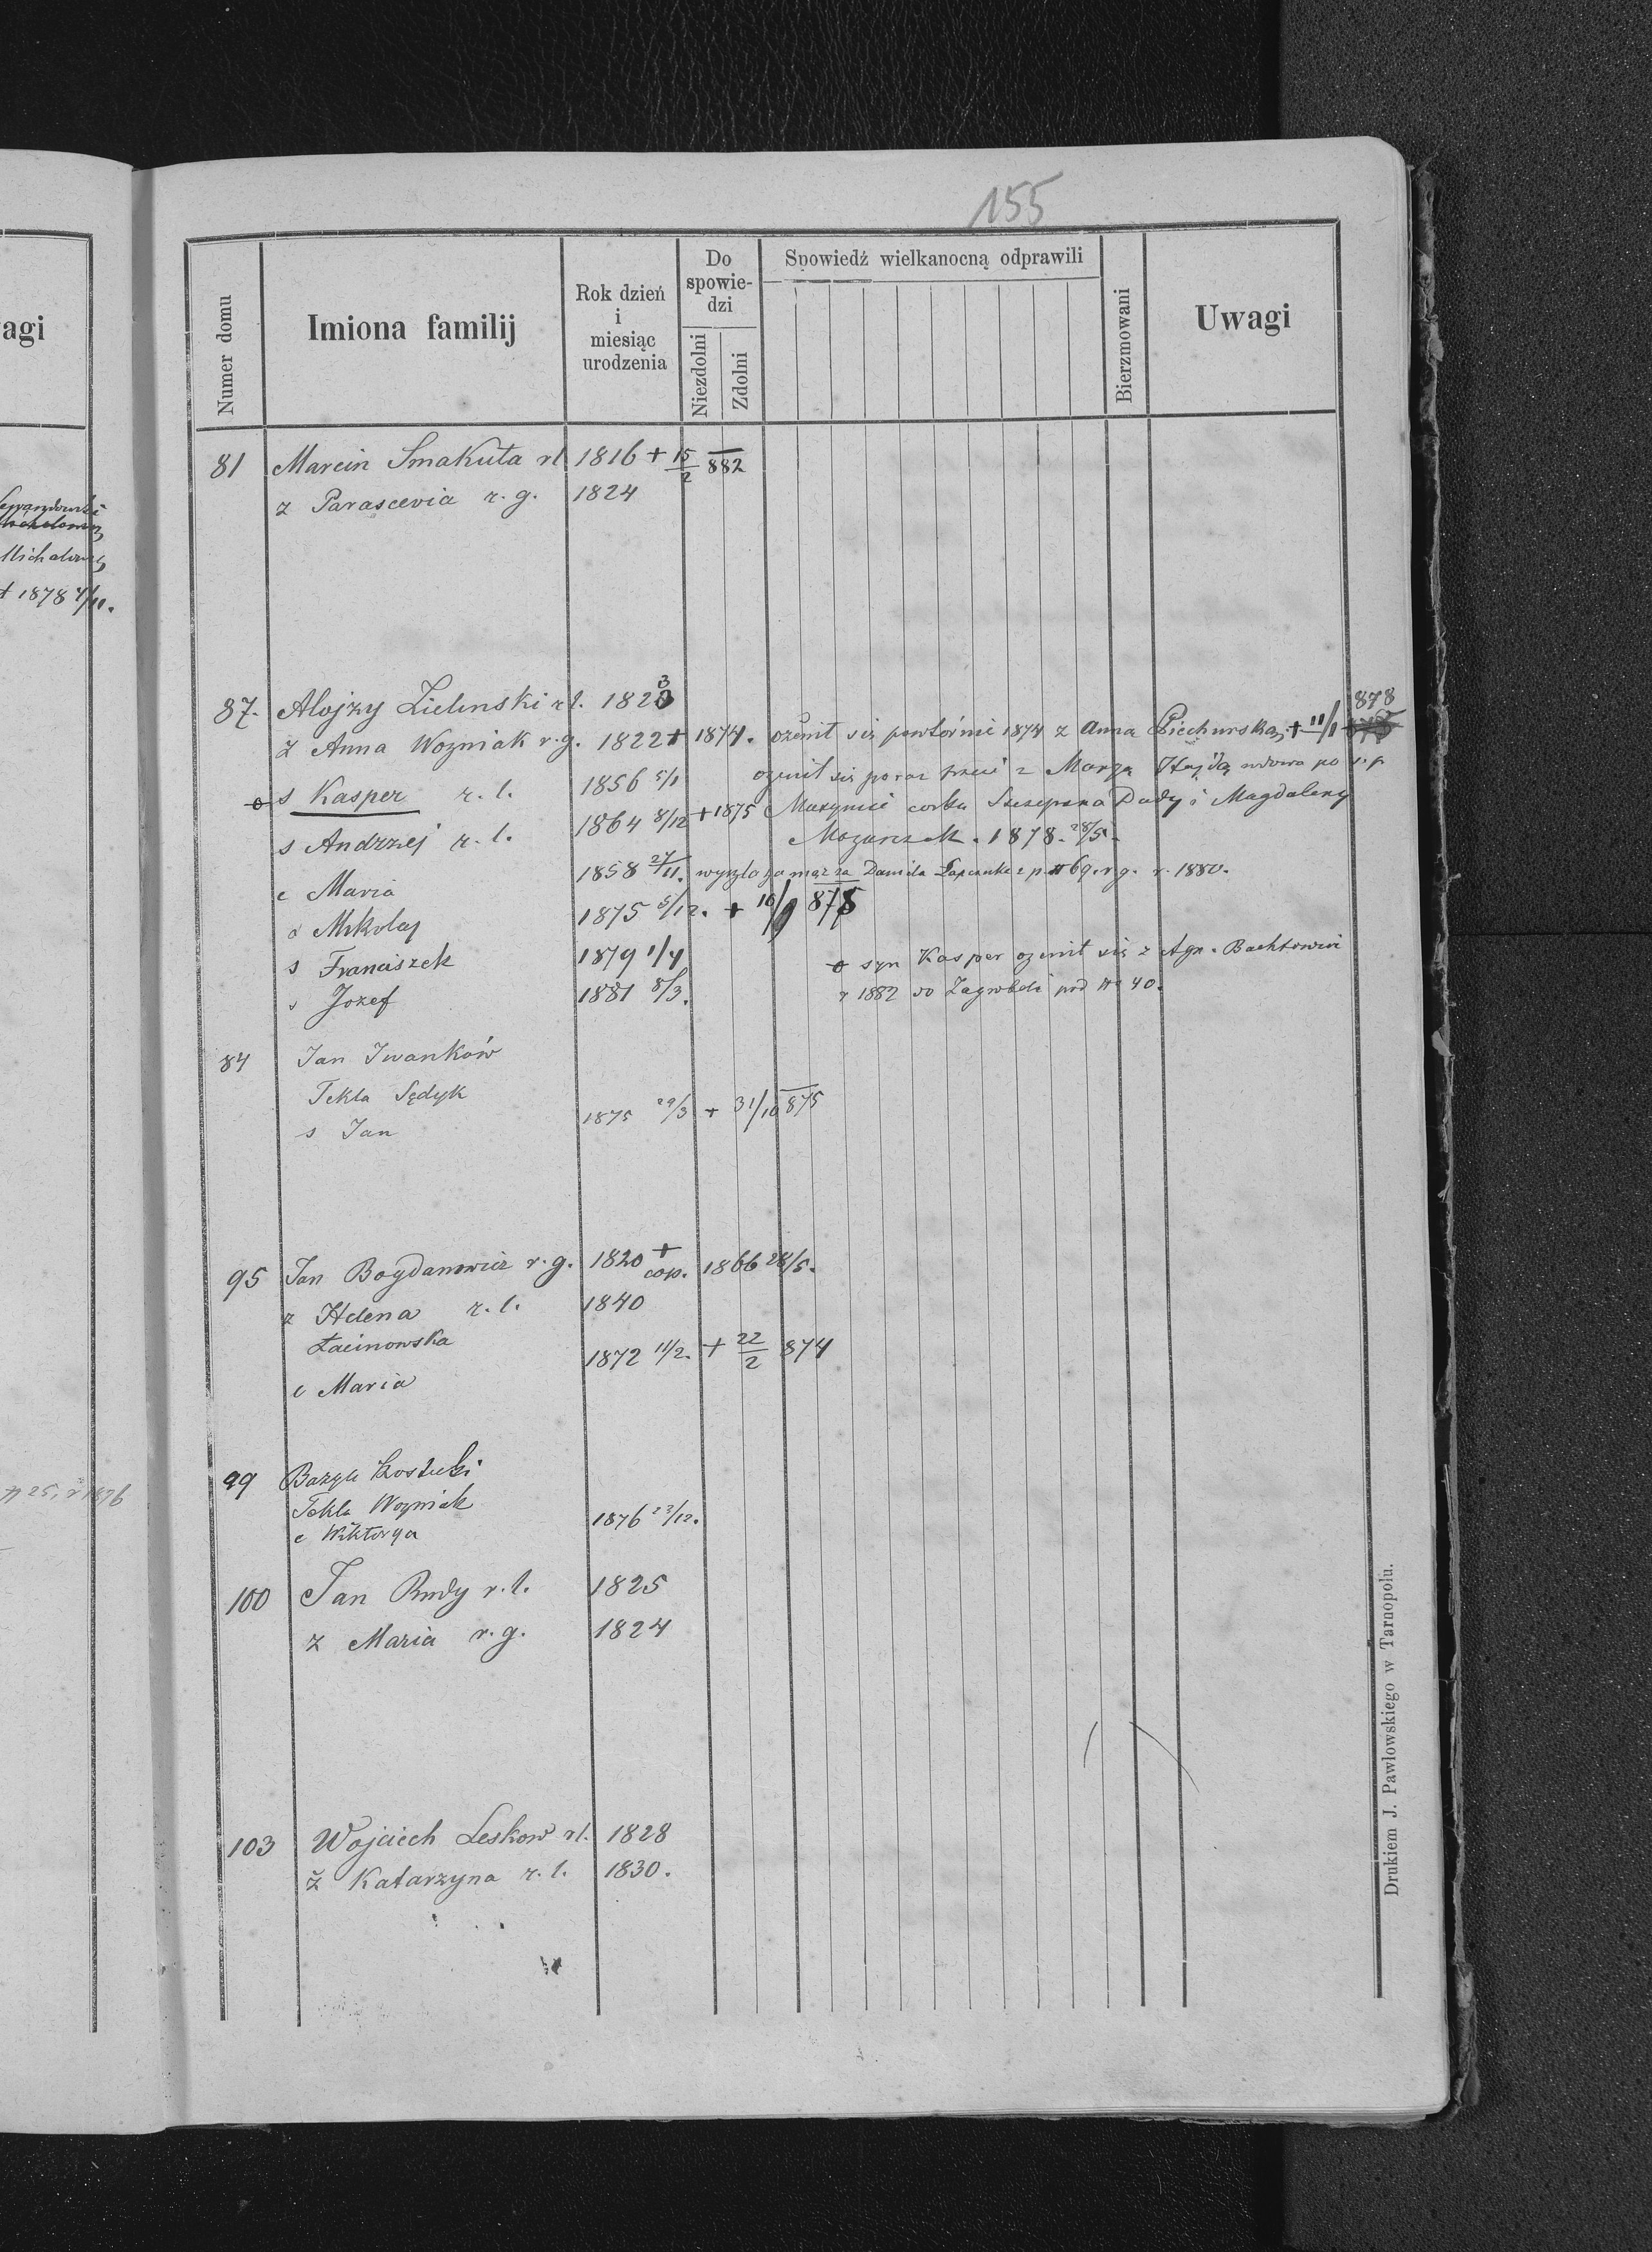 155
Numer domu
Imiona familij
Rok dzień
i
miesiąc
urodzenia
Do
spowie-
dzi
Niezdolni
Zdolni
Spowiedź wielkanocną odprawili
Bierzmowani
Uwagi
agi
Michalowsk
+ 1878 4/11.
81 Marcin Smakuta rl 1816 + 15/2 882
z Parascevia r. g. 1824
87. Alojzy Zielinski r l. 1823
878
ż Anna Wozniak r. g. 1822 + 1874. ożenił się powtórnie 1874 z Anna Piechurską + 11/1
s Kasper r. l. 1856 5/1 ożenił się po raz trzeci z Maryą Hajdą wdowa po ś. p.
s Andrzej r. l. 1864 8/12 + 1875 corka Szczepana Dudy i Magdaleny
1878. 28/5.
c Maria 1858 27/11. wyszła za mąż za Daniła z p. # 69. r g. r. 1880.
s Mikolaj 1875 5/12. + 10/9 875
s Franciszek 1879 1/4
syn Kasper ożenił się z Agn. Bachtowicz
s Jozef 1881 8/3.
r 1882 do Zagrobeli pod No 40.
84 Jan Iwanków
Tekla Sędyk
s Jan 1875 29/3 + 31/10 875
95 Jan Bogdanowicz r. g. 1820 + cop. 1866 28/5.
z Helena r. l. 1840
Łacinowska
c Maria 1872 11/2. + 22/2 874
99 Bazyli Kostecki
Tekla Wozniak
c Wiktorya 1876 23/12.
# 25, r 1876
100 Jan Rudy r. l. 1825
z Maria r. g. 1824
103 Wojciech Leskow rl. 1828
ż Katarzyna r. l. 1830.
Drukiem J. Pawłowskiego w Tarnopolu.